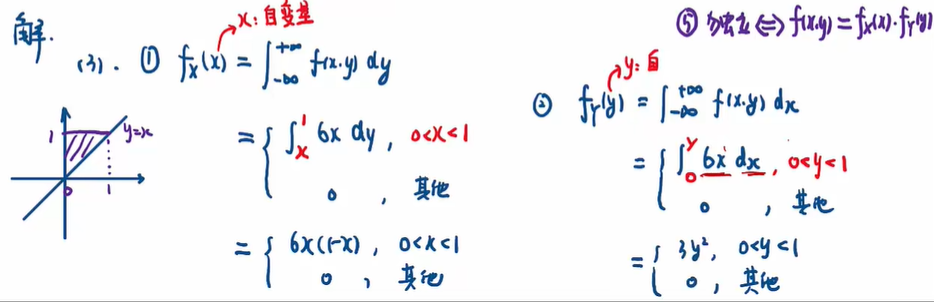 解.
x: 自变量
(3). ① f_X(x) = ∫_{-∞}^{+∞} f(x.y) dy
= { ∫_x^1 6x dy, 0<x<1
0, 其他
= { 6x(1-x), 0<x<1
0, 其他
1
y=x
0
1
⑤ 独立 ⇔ f(x.y) = f_X(x)·f_Y(y)
y: 自
② f_Y(y) = ∫_{-∞}^{+∞} f(x.y) dx
= { ∫_0^y 6x dx, 0<y<1
0, 其他
= { 3y², 0<y<1
0, 其他